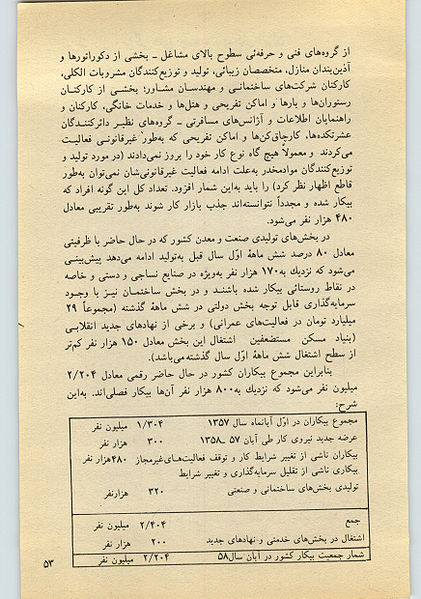 از گروه‌های فنی و حرفه‌ئی سطوح بالای مشاغل ـ بخشی از دکوراتورها و
آذین‌بندان منازل، متخصصان زیبائی، تولید و توزیع‌کنندگان مشروبات الکلی،
کارکنان شرکت‌های ساختمانی و مهندسان مشاور؛ بخشی از کارکنان
رستوران‌ها و بارها و اماکن تفریحی و هتل‌ها و خدمات خانگی، کارکنان و
راهنمایان اطلاعات و آژانس‌های مسافرتی ـ گروه‌های نظیر دائرکنندگان
عشرتکده‌ها، کارچاق‌کن‌ها و اماکن تفریحی که به‌طور غیرقانونی فعالیت
می‌کردند و معمولاً هیچ گاه نوع کار خود را بروز نمی‌دادند (در مورد تولید و
توزیع‌کنندگان موادمخدر به‌علت ادامه فعالیت غیرقانونی‌شان نمی‌توان به‌طور
قاطع اظهار نظر کرد) را باید به‌این شمار افزود. تعداد کل این گونه افراد که
بیکار شده و مجدداً نتوانسته‌اند جذب بازار کار شوند به‌طور تقریبی معادل
۴۸۰ هزار نفر می‌شود.
در بخش‌های تولیدی صنعت و معدن کشور که در حال حاضر با ظرفیتی
معادل ۸۰ درصد شش ماههٔ اوّل سال قبل به‌تولید ادامه می‌دهد پیش‌بینی
می‌شود که نزدیك به‌۱۷۰ هزار نفر به‌ویژه در صنایع نساجی و دستی و خاصه
در نقاط روستائی بیکار شده باشند و در بخش ساختمان نیز با وجود
سرمایه‌گذاری قابل توجه بخش دولتی در شش ماههٔ گذشته (مجموعاً ۲۹
میلیارد تومان در فعالیت‌های عمرانی) و برخی از نهادهای جدید انقلابی
(بنیاد مسکن مستضعفین اشتغال این بخش معادل ۱۵۰ هزار نفر کم‌تر
از سطح اشتغال شش ماههٔ اول سال گذشته‌می‌باشد).
بنابراین مجموع بیکاران کشور در حال حاضر رقمی معادل ۲/۲۰۴
میلیون نفر می‌شود که نزدیك به‌۸۰۰ هزار نفر آن‌ها بیکار فصلی‌اند. به‌این
شرح:
مجموع بیکاران در اوّل آبانماه سال ۱۳۵۷ ۱/۳۰۴ میلیون نفر
عرضه جدید نیروی کار طی آبان ۵۷ ـ۱۳۵۸ ۳۰۰ هزار نفر
بیکاران ناشی از تغییر شرایط کار و توقف فعالیت‌های‌غیرمجاز ۴۸۰هزار نفر
بیکاری ناشی از تقلیل سرمایه‌گذاری و تغییر شرایط
تولیدی بخش‌های ساختمانی و صنعتی ۳۲۰ هزارنفر
جمع ۲/۴۰۴ میلیون نفر
اشتغال در بخش‌های خدمتی و نهادهای جدید ۲۰۰ هزار نفر
شمار جمعیت بیکار کشور در آبان سال۵۸ ۲/۲۰۴ میلیون نفر
۵۳